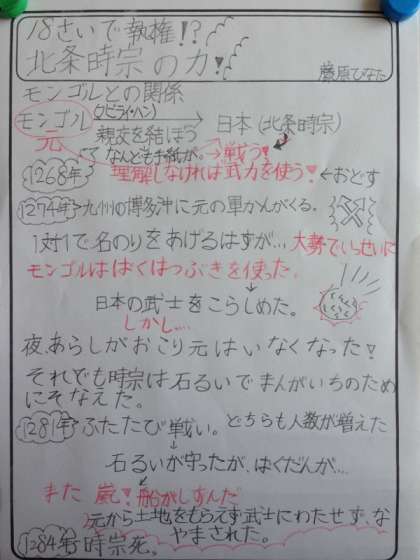 18さいで執権!?
北条時宗の力!
藤原ひなた
モンゴルとの関係
モンゴル フビライ・ハン 日本(北条時宗)
元 親交を結ぼう
なんども手紙が。→戦う!
1268年 理解しなければ武力を使う! ←おどす
1274年 九州の博多沖に元の軍かんがくる。
1対1で名のりをあげるはずが… 大勢でいっせいに
モンゴルははくはつぶきを使った。
日本の武士をこらしめた。
しかし…
夜、あらしがおこり元はいなくなった!
それでも時宗は石るいでまんがいちのため
にそなえた。
1281年 ふたたび戦い。 どちらも人数が増えた
石るいが守ったが、はくだんが…
また 嵐! 船がしずんだ
元から土地をもらえず武士にわたせず、な
やまされた。
1284年 時宗死。